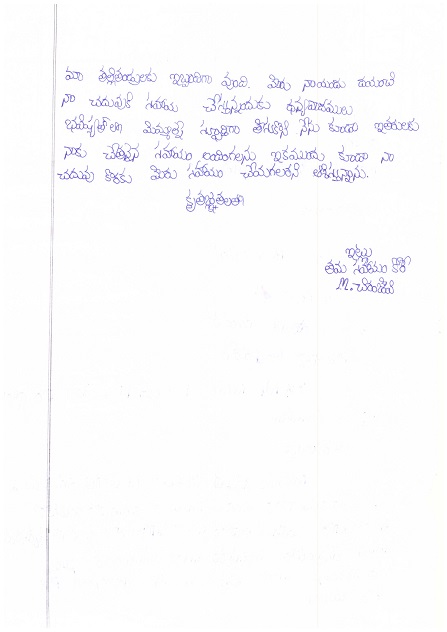 మా తల్లితండ్రులకు ఇబ్బందిగా వుంది. మీరు నాయందు దయఉంచి
నా చదువుకి సహాయ చేస్తున్నందుకు ధన్యవాదములు
భవిష్యత్ లో మిమ్మల్ని స్ఫూర్తిగా తీసుకొని నేను కూడా ఇతరులకు
నాకు చేతనైన సహాయం అందించగలను ఇకముందు కూడా నా
చదువు కొరకు మీరు సహాయం చేయగలరని ఆశిస్తున్నాను.
కృతజ్ఞతలతో
ఇట్లు
తమ సహాయం కోరే
M. చిరంజీవి